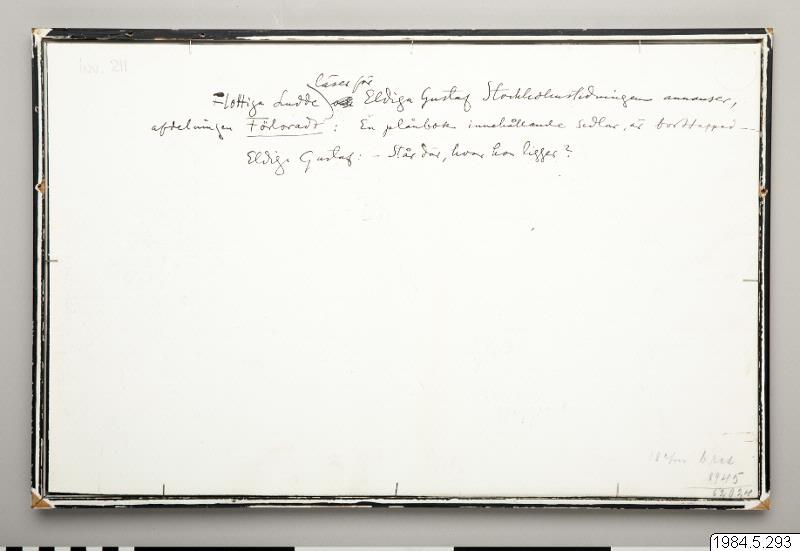 Inv. 211
läser för
Flottiga Ludde Eldiga Gustaf Stockholmstidningens annonser,
afdelningen Förloradt: En plånbok innehållande sedlar, är borttappad —
Eldiga Gustaf: – Står där, hvar hon ligger?
18 bred
8945
1984.5.293